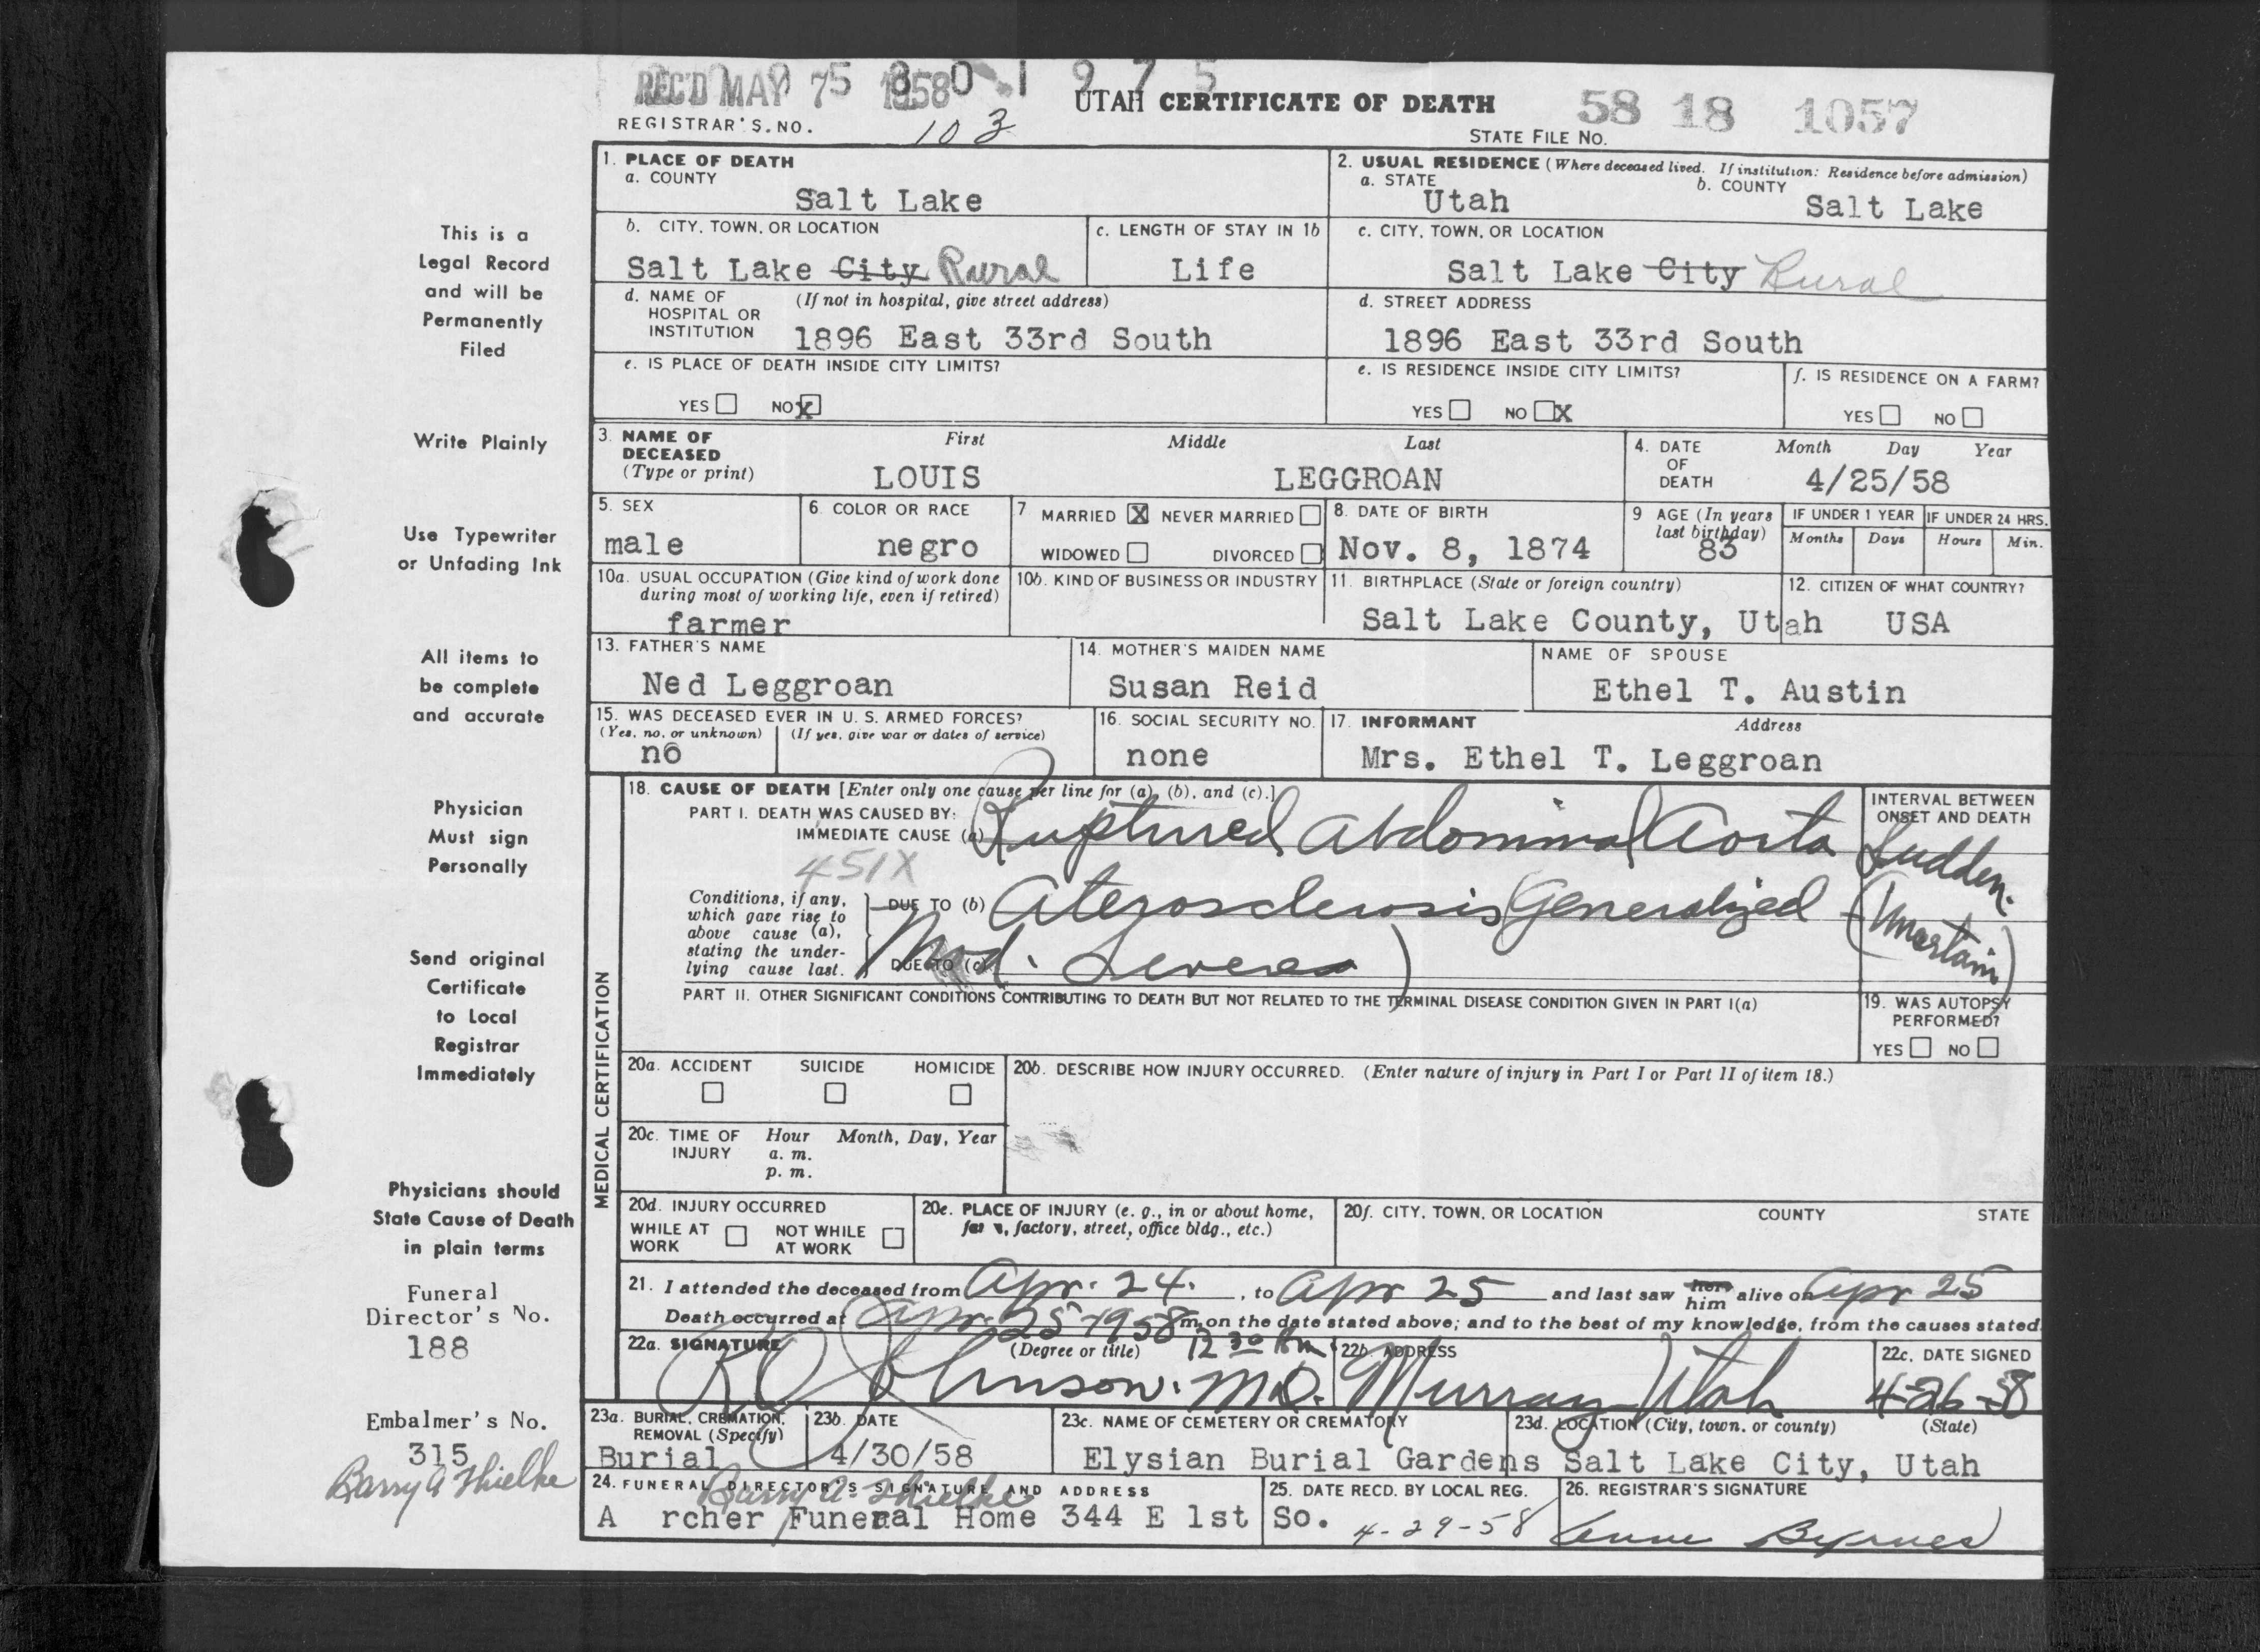 REC'D MAY 75 1958 0 1 9 7 5
UTAH CERTIFICATE OF DEATH
58 18 1057
REGISTRAR'S. NO. 103
STATE FILE NO.
This is a
Legal Record
and will be
Permanently
Filed
Write Plainly
Use Typewriter
or Unfading Ink
All items to
be complete
and accurate
Physician
Must sign
Personally
Send original
Certificate
to Local
Registrar
Immediately
Physicians should
State Cause of Death
in plain terms
Funeral
Director's No.
188
Embalmer's No.
315
Barry A Thielke
1. PLACE OF DEATH
a. COUNTY
Salt Lake
2. USUAL RESIDENCE (Where deceased lived. If institution: Residence before admission)
a. STATE
Utah
b. COUNTY
Salt Lake
b. CITY, TOWN, OR LOCATION
Salt Lake City Rural
c. LENGTH OF STAY IN 1b
Life
c. CITY, TOWN, OR LOCATION
Salt Lake City Rural
d. NAME OF HOSPITAL OR INSTITUTION
(If not in hospital, give street address)
1896 East 33rd South
d. STREET ADDRESS
1896 East 33rd South
e. IS PLACE OF DEATH INSIDE CITY LIMITS?
YES NO X
e. IS RESIDENCE INSIDE CITY LIMITS?
YES NO X
f. IS RESIDENCE ON A FARM?
YES NO
3. NAME OF DECEASED
(Type or print)
First Middle Last
LOUIS LEGGROAN
4. DATE OF DEATH
Month Day Year
4/25/58
5. SEX
male
6. COLOR OR RACE
negro
7 MARRIED X NEVER MARRIED
WIDOWED DIVORCED
8. DATE OF BIRTH
Nov. 8, 1874
9 AGE (In years last birthday)
83
IF UNDER 1 YEAR IF UNDER 24 HRS.
Months Days Hours Min.
10a. USUAL OCCUPATION (Give kind of work done during most of working life, even if retired)
farmer
10b. KIND OF BUSINESS OR INDUSTRY
11. BIRTHPLACE (State or foreign country)
Salt Lake County, Utah
12. CITIZEN OF WHAT COUNTRY?
USA
13. FATHER'S NAME
Ned Leggroan
14. MOTHER'S MAIDEN NAME
Susan Reid
NAME OF SPOUSE
Ethel T. Austin
15. WAS DECEASED EVER IN U. S. ARMED FORCES?
(Yes, no, or unknown) (If yes, give war or dates of service)
no
16. SOCIAL SECURITY NO.
none
17. INFORMANT Address
Mrs. Ethel T. Leggroan
MEDICAL CERTIFICATION
18. CAUSE OF DEATH [Enter only one cause per line for (a), (b), and (c).]
PART I. DEATH WAS CAUSED BY:
IMMEDIATE CAUSE (a) Ruptured Abdominal Aorta
451X
INTERVAL BETWEEN ONSET AND DEATH
Sudden.
Conditions, if any, which gave rise to above cause (a), stating the underlying cause last.
DUE TO (b) Aterosclerosis (Generalized
(Uncertain)
DUE TO (c) Mod. Severe)
PART II. OTHER SIGNIFICANT CONDITIONS CONTRIBUTING TO DEATH BUT NOT RELATED TO THE TERMINAL DISEASE CONDITION GIVEN IN PART I(a)
19. WAS AUTOPSY PERFORMED?
YES NO
20a. ACCIDENT SUICIDE HOMICIDE
20b. DESCRIBE HOW INJURY OCCURRED. (Enter nature of injury in Part I or Part II of item 18.)
20c. TIME OF INJURY
Hour Month, Day, Year
a. m.
p. m.
20d. INJURY OCCURRED
WHILE AT WORK NOT WHILE AT WORK
20e. PLACE OF INJURY (e. g., in or about home, farm, factory, street, office bldg., etc.)
20f. CITY, TOWN, OR LOCATION COUNTY STATE
21. I attended the deceased from Apr. 24. , to Apr 25 and last saw her him alive on Apr 25
Death occurred at Apr. 25-1958 m, on the date stated above; and to the best of my knowledge, from the causes stated.
22a. SIGNATURE (Degree or title) 12 30
Johnson. M.D.
22b. ADDRESS
Murray Utah
22c. DATE SIGNED
4-26-58
23a. BURIAL, CREMATION, REMOVAL (Specify)
Burial
23b. DATE
4/30/58
23c. NAME OF CEMETERY OR CREMATORY
Elysian Burial Gardens
23d. LOCATION (City, town, or county) (State)
Salt Lake City, Utah
24. FUNERAL DIRECTOR'S SIGNATURE AND ADDRESS
Barry A. Thielke
A rcher Funeral Home 344 E 1st So.
25. DATE RECD. BY LOCAL REG.
4-29-58
26. REGISTRAR'S SIGNATURE